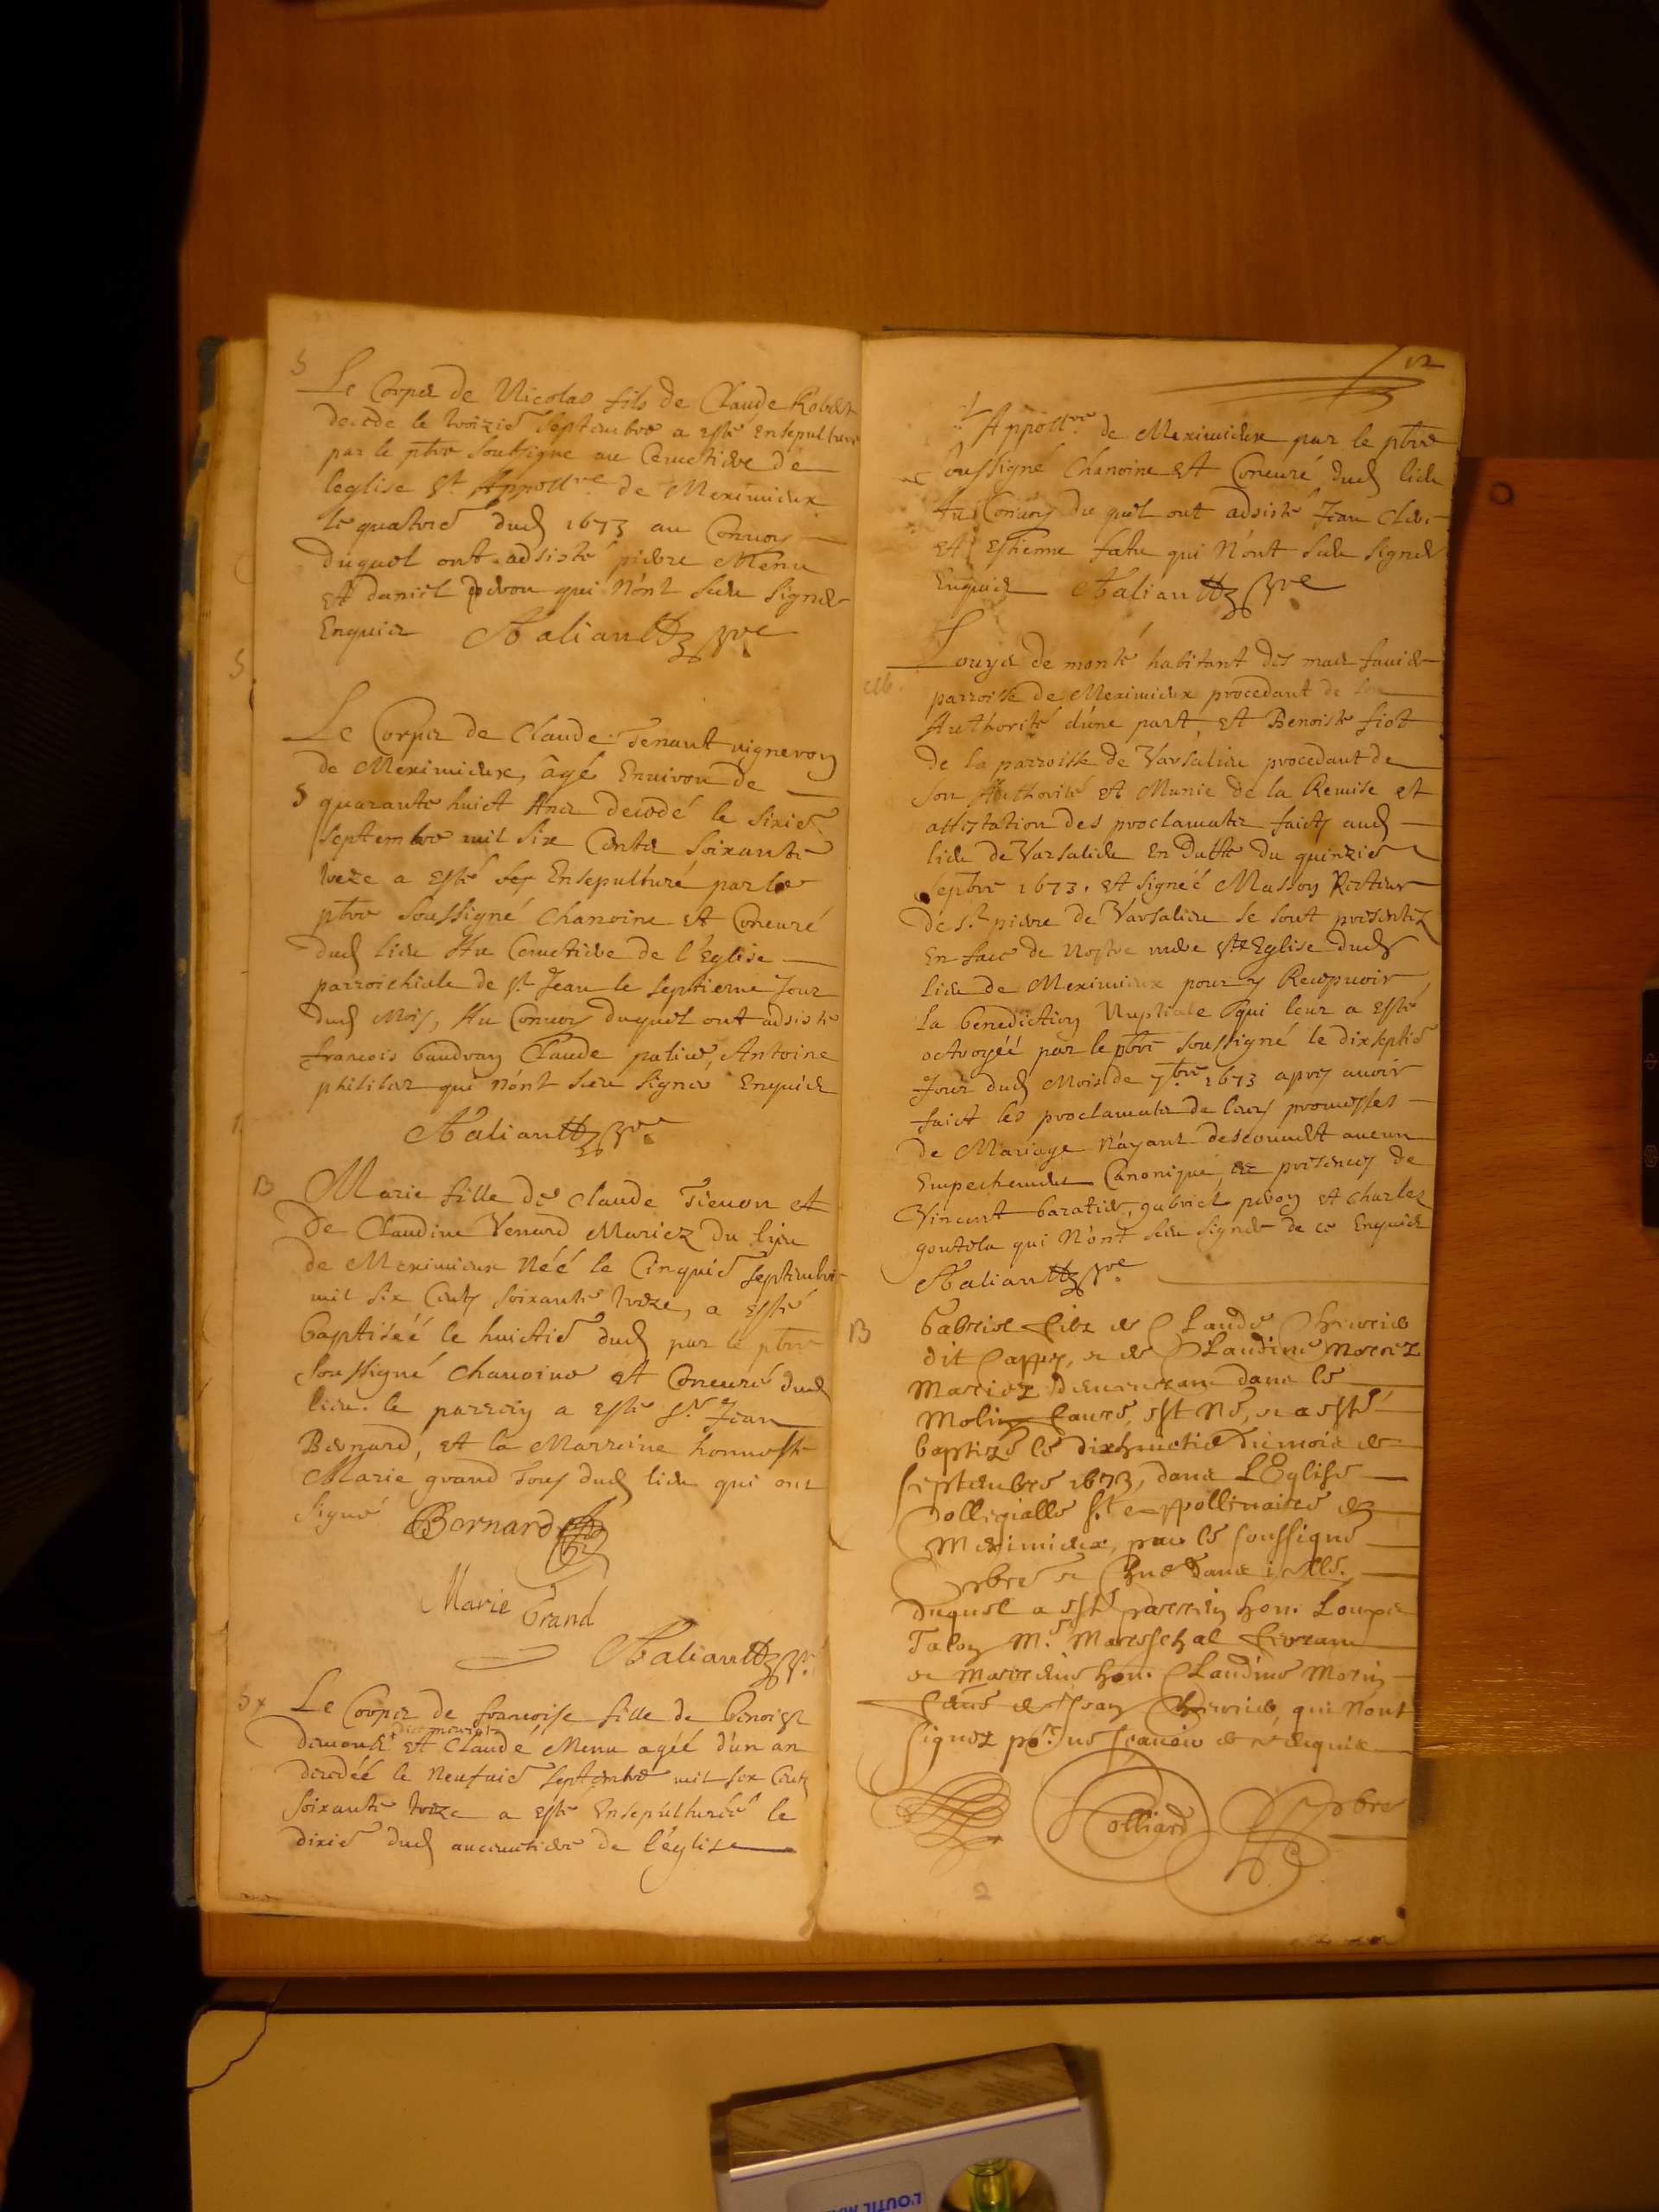 S
Le Corps de Nicolas fils de Claude Robert
decede le troizie septembre a esté ensepulturé
par le pbre soubsigne au Cemetiere de
leglise St Appollre de Meximieux
le quatorie dud 1673 au Convoy
duquel ont adsisté pierre Menu
Et daniel peron qui n'ont sceu signer
Enquis Aaliaultz pbre
S
Le Corps de Claude Tenant vigneron
de Meximieux, âgé Environ de
S quarante huict Ans decedé le sixie
septembre mil six Cents soixante
treze a Esté Ensepulturé par le
pbre soussigné Chanoine et Concuré
dud lieu Au Cemetiere de l'Eglise
parroichiale de st Jean le septieme Jour
dud Mois, Au Convoy duquel ont adsisté
francois baudran Claude Antoine
qui n'ont sceu signer Enquis
Aaliaultz pbre
B
Marie fille de Claude Tienon et
De Claudine Venard Mariez du lieu
de Meximieux Néé le Cinquie septembre
mil six Cents soixante treze, a Esté
baptiséé le huictie dud par le pbre
soussigné Chanoine et Concuré dud
lieu. le parrein a esté sr Jean
Bernard, et la Marreine honneste
Marie grand Tous dud lieu qui ont
signé Bernard
Marie Grand
Aaliaultz p.
S+
Le Corps de francoise fille de benoist
demonté et Claude Menu agéé d'un an
decedéé le Neufuie septembre mil six Cents
soixante treze a esté Ensepulturéé le
dixie dud au cemetiere de l'église
12
st Appollre de Meximieux par le pbre
soussigné Chanoine et Concuré dud lieu
Au Convoy du quel ont adsisté Jean Clerc
Et Estienne fatu qui N'ont sceu signer
Enquis Aaliaultz pbre
M.
Louys de monté habitant des mas
parroisse de Meximieux procedant de son
Authorité d'une part, et Benoiste fiot
de la parroisse de Varsalieu procedant de
son Authorité et Munie de la Remise et
attestation des proclamats faicts aud
lieu de Varsalieu en datte du quinzie
septbre 1673. et signéé Masson Recteur
de st pierre de Varsalieu se sont presentez
En face de Nostre mere ste Eglise dud
lieu de Meximieux pour y Recepvoir
la benediction Nuptiale qui leur a esté
octroyéé par le pbre soussigné le dixseptie
Jour dud Mois de 7bre 1673 apres avoir
faict les proclamats de leurs promesses
de Mariage N'ayant descouvert aucun
Empechement Canonique, presences de
Vincent baratier, gabriel peron et Charles
goutela qui N'ont sceu signer de ce Enquis
Aaliaultz pbre
B
Gabriel filz de Claude
dit Cappy, et de Claudine
Mariez dans le
Molin est Né, et a esté
baptizé le dixhuictie du mois de
septembre 1673, dans L'Eglise
Collegialle st Appollinaire de
Meximieux, par le soussigné
pbre et Chne dans icelle.
Duquel a esté parrein hon. Louys
Talon Me Mareschal
et Marreine hon. Claudine Morin
de Jean qui n'ont
signez pour ne scavoir de ce enquis
Colliard pbre
2
L'OUTIL